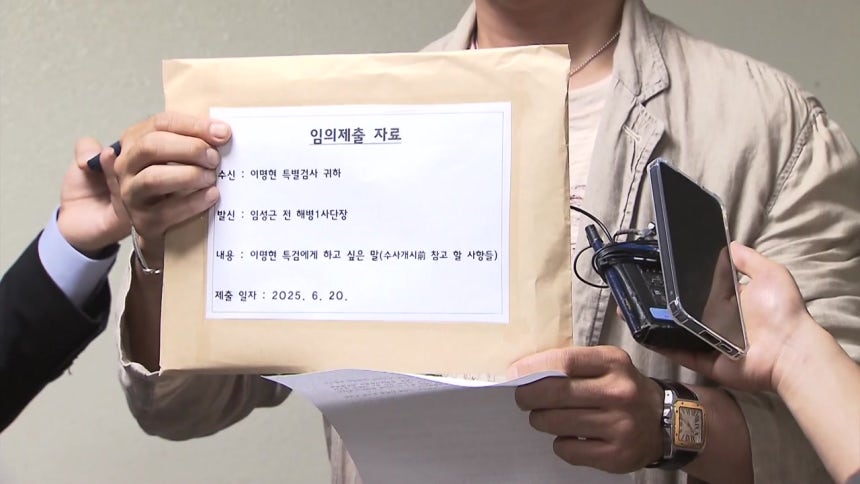 임의제출 자료
수신 : 이명현 특별검사 귀하
발신 : 임성근 전 해병1사단장
내용 : 이명현 특검에게 하고 싶은 말(수사개시前 참고 할 사항들)
제출 일자 : 2025. 6. 20.